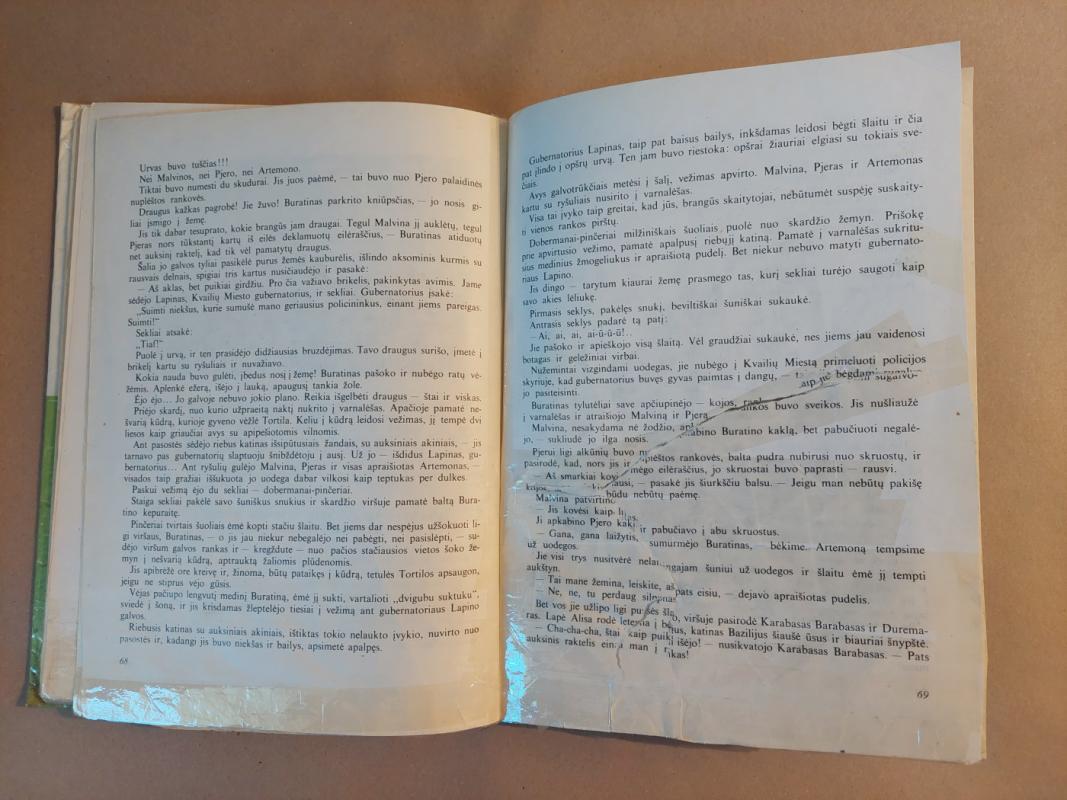 Urvas buvo tuščias!!!
Nei Malvinos, nei Pjero, nei Artemono.
Tiktai buvo numesti du skudurai. Jis juos paėmė, — tai buvo nuo Pjero palaidinės
nuplėštos rankovės.
Draugus kažkas pagrobė! Jie žuvo! Buratinas parkrito kniūpsčias, — jo nosis gi-
liai įsmigo į žemę.
Jis tik dabar tesuprato, kokie brangūs jam draugai. Tegul Malvina jį auklėtų, tegul
Pjeras nors tūkstantį kartų iš eilės deklamuotų eilėraščius, — Buratinas atiduotų
net auksinį raktelį, kad tik vėl pamatytų draugus.
Šalia jo galvos tyliai pasikėlė purus žemės kauburėlis, išlindo aksominis kurmis su
rausvais delnais, spigiai tris kartus nusičiaudėjo ir pasakė:
— Aš aklas, bet puikiai girdžiu. Pro čia važiavo brikelis, pakinkytas avimis. Jame
sėdėjo Lapinas, Kvailių Miesto gubernatorius, ir sekliai. Gubernatorius įsakė:
„Suimti niekšus, kurie sumušė mano geriausius policininkus, einant jiems pareigas.
Suimti!“
Sekliai atsakė:
„Tiaf!“
Puolė į urvą, ir ten prasidėjo didžiausias bruzdėjimas. Tavo draugus surišo, įmetė į
brikelį kartu su ryšuliais ir nuvažiavo.
Kokia nauda buvo gulėti, įbedus nosį į žemę! Buratinas pašoko ir nubėgo ratų vė-
žėmis. Aplenkė ežerą, išėjo į lauką, apaugusį tankia žole.
Ėjo ėjo... Jo galvoje nebuvo jokio plano. Reikia išgelbėti draugus — štai ir viskas.
Priėjo skardį, nuo kurio užpraeitą naktį nukrito į varnalėšas. Apačioje pamatė ne-
švarią kūdrą, kurioje gyveno vėžlė Tortila. Keliu į kūdrą leidosi vežimas, jį tempė dvi
liesos kaip griaučiai avys su apipešiotomis vilnomis.
Ant pasostės sėdėjo riebus katinas išsipūtusiais žandais, su auksiniais akiniais, — jis
tarnavo pas gubernatorių slaptuoju šnibždėtoju į ausį. Už jo — išdidus Lapinas, gu-
bernatorius... Ant ryšulių gulėjo Malvina, Pjeras ir visas apraišiotas Artemonas, —
visados taip gražiai iššukuota jo uodega dabar vilkosi kaip teptukas per dulkes.
Paskui vežimą ėjo du sekliai — dobermanai-pinčeriai.
Staiga sekliai pakėlė savo šuniškus snukius ir skardžio viršuje pamatė baltą Bura-
tino kepuraitę.
Pinčeriai tvirtais šuoliais ėmė kopti stačiu šlaitu. Bet jiems dar nespėjus užšokuoti li-
gi viršaus, Buratinas, — o jis jau niekur nebegalėjo nei pabėgti, nei pasislėpti, — su-
dėjo viršum galvos rankas ir — kregždute — nuo pačios stačiausios vietos šoko že-
myn į nešvarią kūdrą, aptrauktą žaliomis plūdenomis.
Jis apibrėžė ore kreivę ir, žinoma, būtų pataikęs į kūdrą, tetulės Tortilos apsaugon,
jeigu ne stiprus vėjo gūsis.
Vėjas pačiupo lengvutį medinį Buratiną, ėmė jį sukti, vartalioti „dvigubu suktuku“,
sviedė į šoną, ir jis krisdamas žleptelėjo tiesiai į vežimą ant gubernatoriaus Lapino
galvos.
Riebusis katinas su auksiniais akiniais, ištiktas tokio nelaukto įvykio, nuvirto nuo
pasostės ir, kadangi jis buvo niekšas ir bailys, apsimetė apalpęs.
68
Gubernatorius Lapinas, taip pat baisus bailys, inkšdamas leidosi bėgti šlaitu ir čia
pat įlindo į opšrų urvą. Ten jam buvo riestoka: opšrai žiauriai elgiasi su tokiais sve-
čiais.
Avys galvotrūkčiais metėsi į šalį, vežimas apvirto. Malvina, Pjeras ir Artemonas
kartu su ryšuliais nusirito į varnalėšas.
Visa tai įvyko taip greitai, kad jūs, brangūs skaitytojai, nebūtumėt suspėję suskaity-
ti vienos rankos pirštų.
Dobermanai-pinčeriai milžiniškais šuoliais puolė nuo skardžio žemyn. Prišokę
prie apvirtusio vežimo, pamatė apalpusį riebųjį katiną. Pamatė į varnalėšas sukritu-
sius medinius žmogeliukus ir apraišiotą pudelį. Bet niekur nebuvo matyti gubernato-
riaus Lapino.
Jis dingo — tarytum kiaurai žemę prasmego tas, kurį sekliai turėjo saugoti kaip
savo akies lėliukę.
Pirmasis seklys, pakėlęs snukį, beviltiškai šuniškai sukaukė.
Antrasis seklys padarė tą patį:
— Ai, ai, ai, ai-ū-ū-ū!..
Jie pašoko ir apieškojo visą šlaitą. Vėl graudžiai sukaukė, nes jiems jau vaidenosi
botagas ir geležiniai virbai.
Nužemintai vizgindami uodegas, jie nubėgo į Kvailių Miestą primeluoti policijos
skyriuje, kad gubernatorius buvęs gyvas paimtas į dangų, — taip jie bėgdami sugalvo-
jo pasiteisinti.
Buratinas tylutėliai save apčiupinėjo — kojos, rankos buvo sveikos. Jis nušliaužė
į varnalėšas ir atraišiojo Malviną ir Pjerą.
Malvina, nesakydama nė žodžio, apkabino Buratino kaklą, bet pabučiuoti negalė-
jo, — sukliudė jo ilga nosis.
Pjerui ligi alkūnių buvo nuplėštos rankovės, balta pudra nubirusi nuo skruostų, ir
pasirodė, kad, nors jis ir mėgo eilėraščius, jo skruostai buvo paprasti — rausvi.
— Aš smarkiai koviausi, — pasakė jis šiurkščiu balsu. — Jeigu man nebūtų pakišę
kojos būdu nebūtų paėmę.
Malvina patvirtino:
— Jis kovėsi kaip liūtas.
Ji apkabino Pjero kaklą ir pabučiavo į abu skruostus.
— Gana, gana laižytis, — sumurmėjo Buratinas, — bėkime. Artemoną tempsime
už uodegos.
Jie visi trys nusitvėrė nelaimingajam šuniui už uodegos ir šlaitu ėmė jį tempti
aukštyn.
— Tai mane žemina, leiskite, aš pats eisiu, — dejavo apraišiotas pudelis.
— Ne, ne, tu perdaug silpnas.
Bet vos jie užlipo ligi pusės šlaito, viršuje pasirodė Karabasas Barabasas ir Durema-
ras. Lapė Alisa rodė letena į bėglius, katinas Bazilijus šiaušė ūsus ir biauriai šnypštė.
— Cha-cha-cha, štai kaip puikiai išėjo! — nusikvatojo Karabasas Barabasas. — Pats
auksinis raktelis eina man į rankas!
69